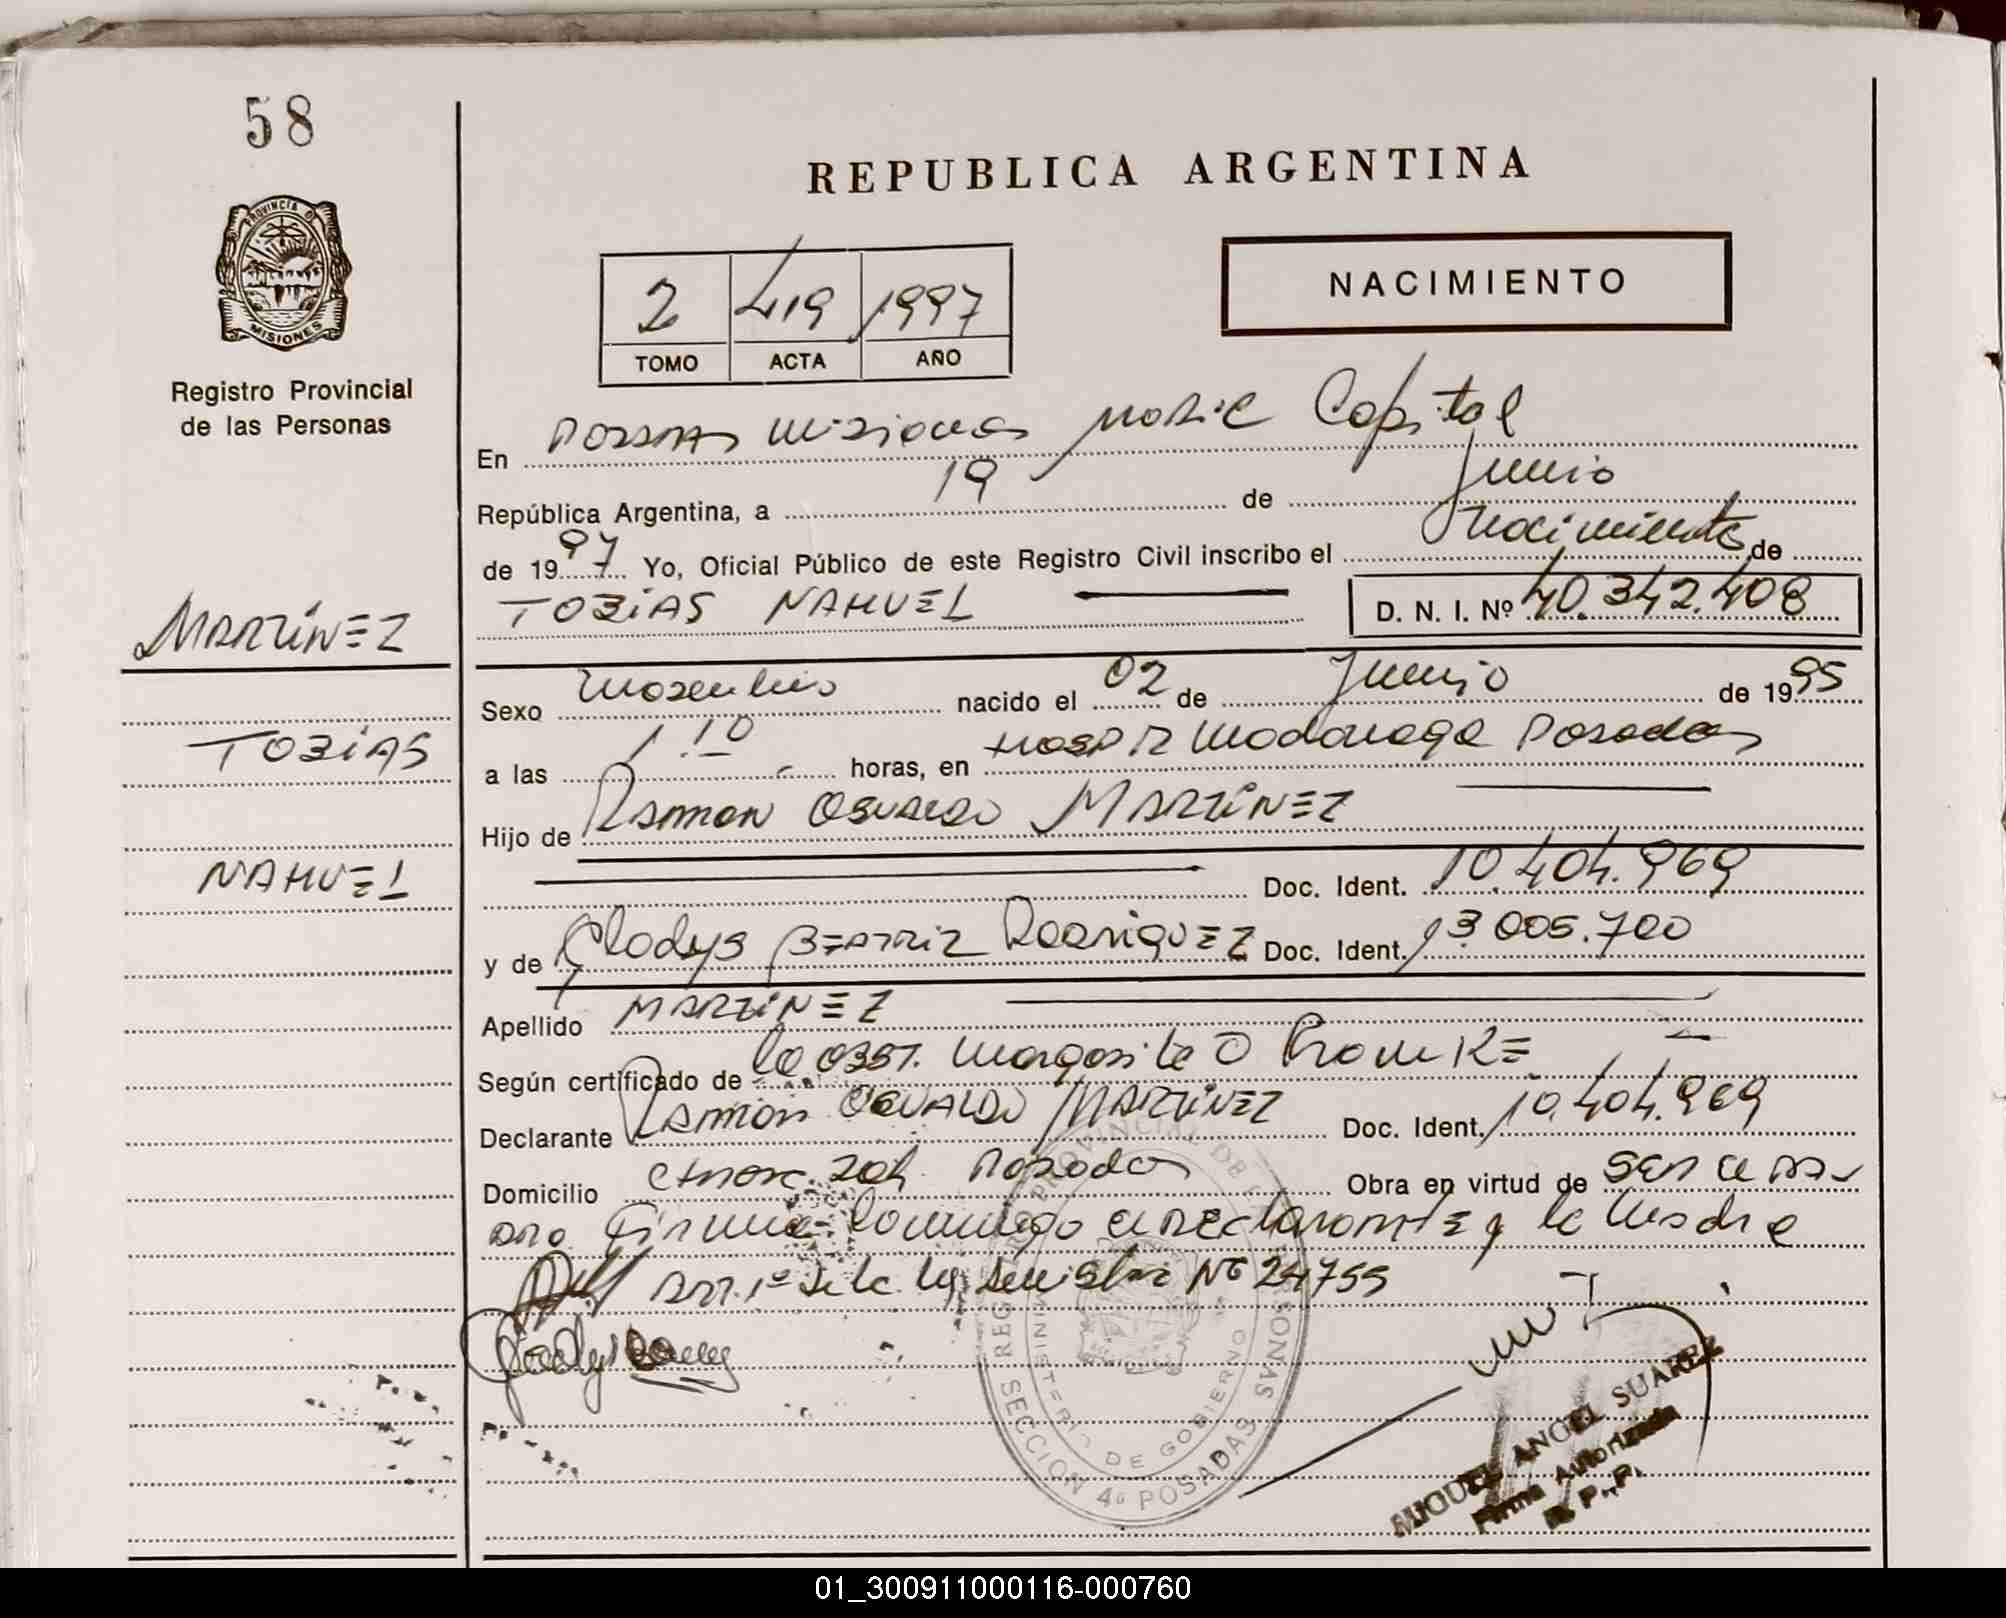 58
REPUBLICA ARGENTINA
PROVINCIA DE
MISIONES
Registro Provincial
de las Personas
2 419 1997
TOMO ACTA AÑO
NACIMIENTO
En Posadas Misiones Capital
República Argentina, a 19 de Junio
de 1997 Yo, Oficial Público de este Registro Civil inscribo el Nacimiento de
TOBIAS NAHUEL D. N. I. Nº 40.342.408
MARTINEZ
TOBIAS
NAHUEL
Sexo Masculino nacido el 02 de Junio de 1995
a las 1.10 horas, en Hosp R Madariaga Posadas
Hijo de Ramon Osvaldo MARTINEZ
Doc. Ident. 10.404.969
y de Gladys Beatriz Rodriguez Doc. Ident. 13.005.700
Apellido MARTINEZ
Según certificado de la Obst. Margarita
Declarante Ramon Osvaldo MARTINEZ Doc. Ident. 10.404.969
Domicilio 204 Posadas Obra en virtud de ser
Firma conmigo el declarante y la Madre
Art. 1º de la Ley Nº 24755
REGISTRO PROVINCIAL DE LAS PERSONAS
MINISTERIO DE GOBIERNO
SECCION 4ª POSADAS
MIGUEL ANGEL SUAREZ
Firma Autorizada
R. P. P.
01_300911000116-000760